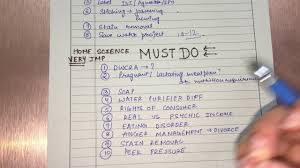 ⑤ Label ISI / Agmark / FPO
⑥ Stitching →
⑦ Stain removal
⑧ Save water project 10-12
HOME SCIENCE
VERY IMP
MUST DO
① DWCRA → ?
② Pregnant / lactating meal plan
nutrition requirement
③ SOAP
④ WATER PURIFIER DIFF
⑤ RIGHTS OF CONSUMER
⑥ REAL VS PSYCHIC INCOME
⑦ EATING DISORDER
⑧ ANGER MANAGEMENT → DIVORCE
⑨ STAIN REMOVAL
⑩ PEER PRESSURE